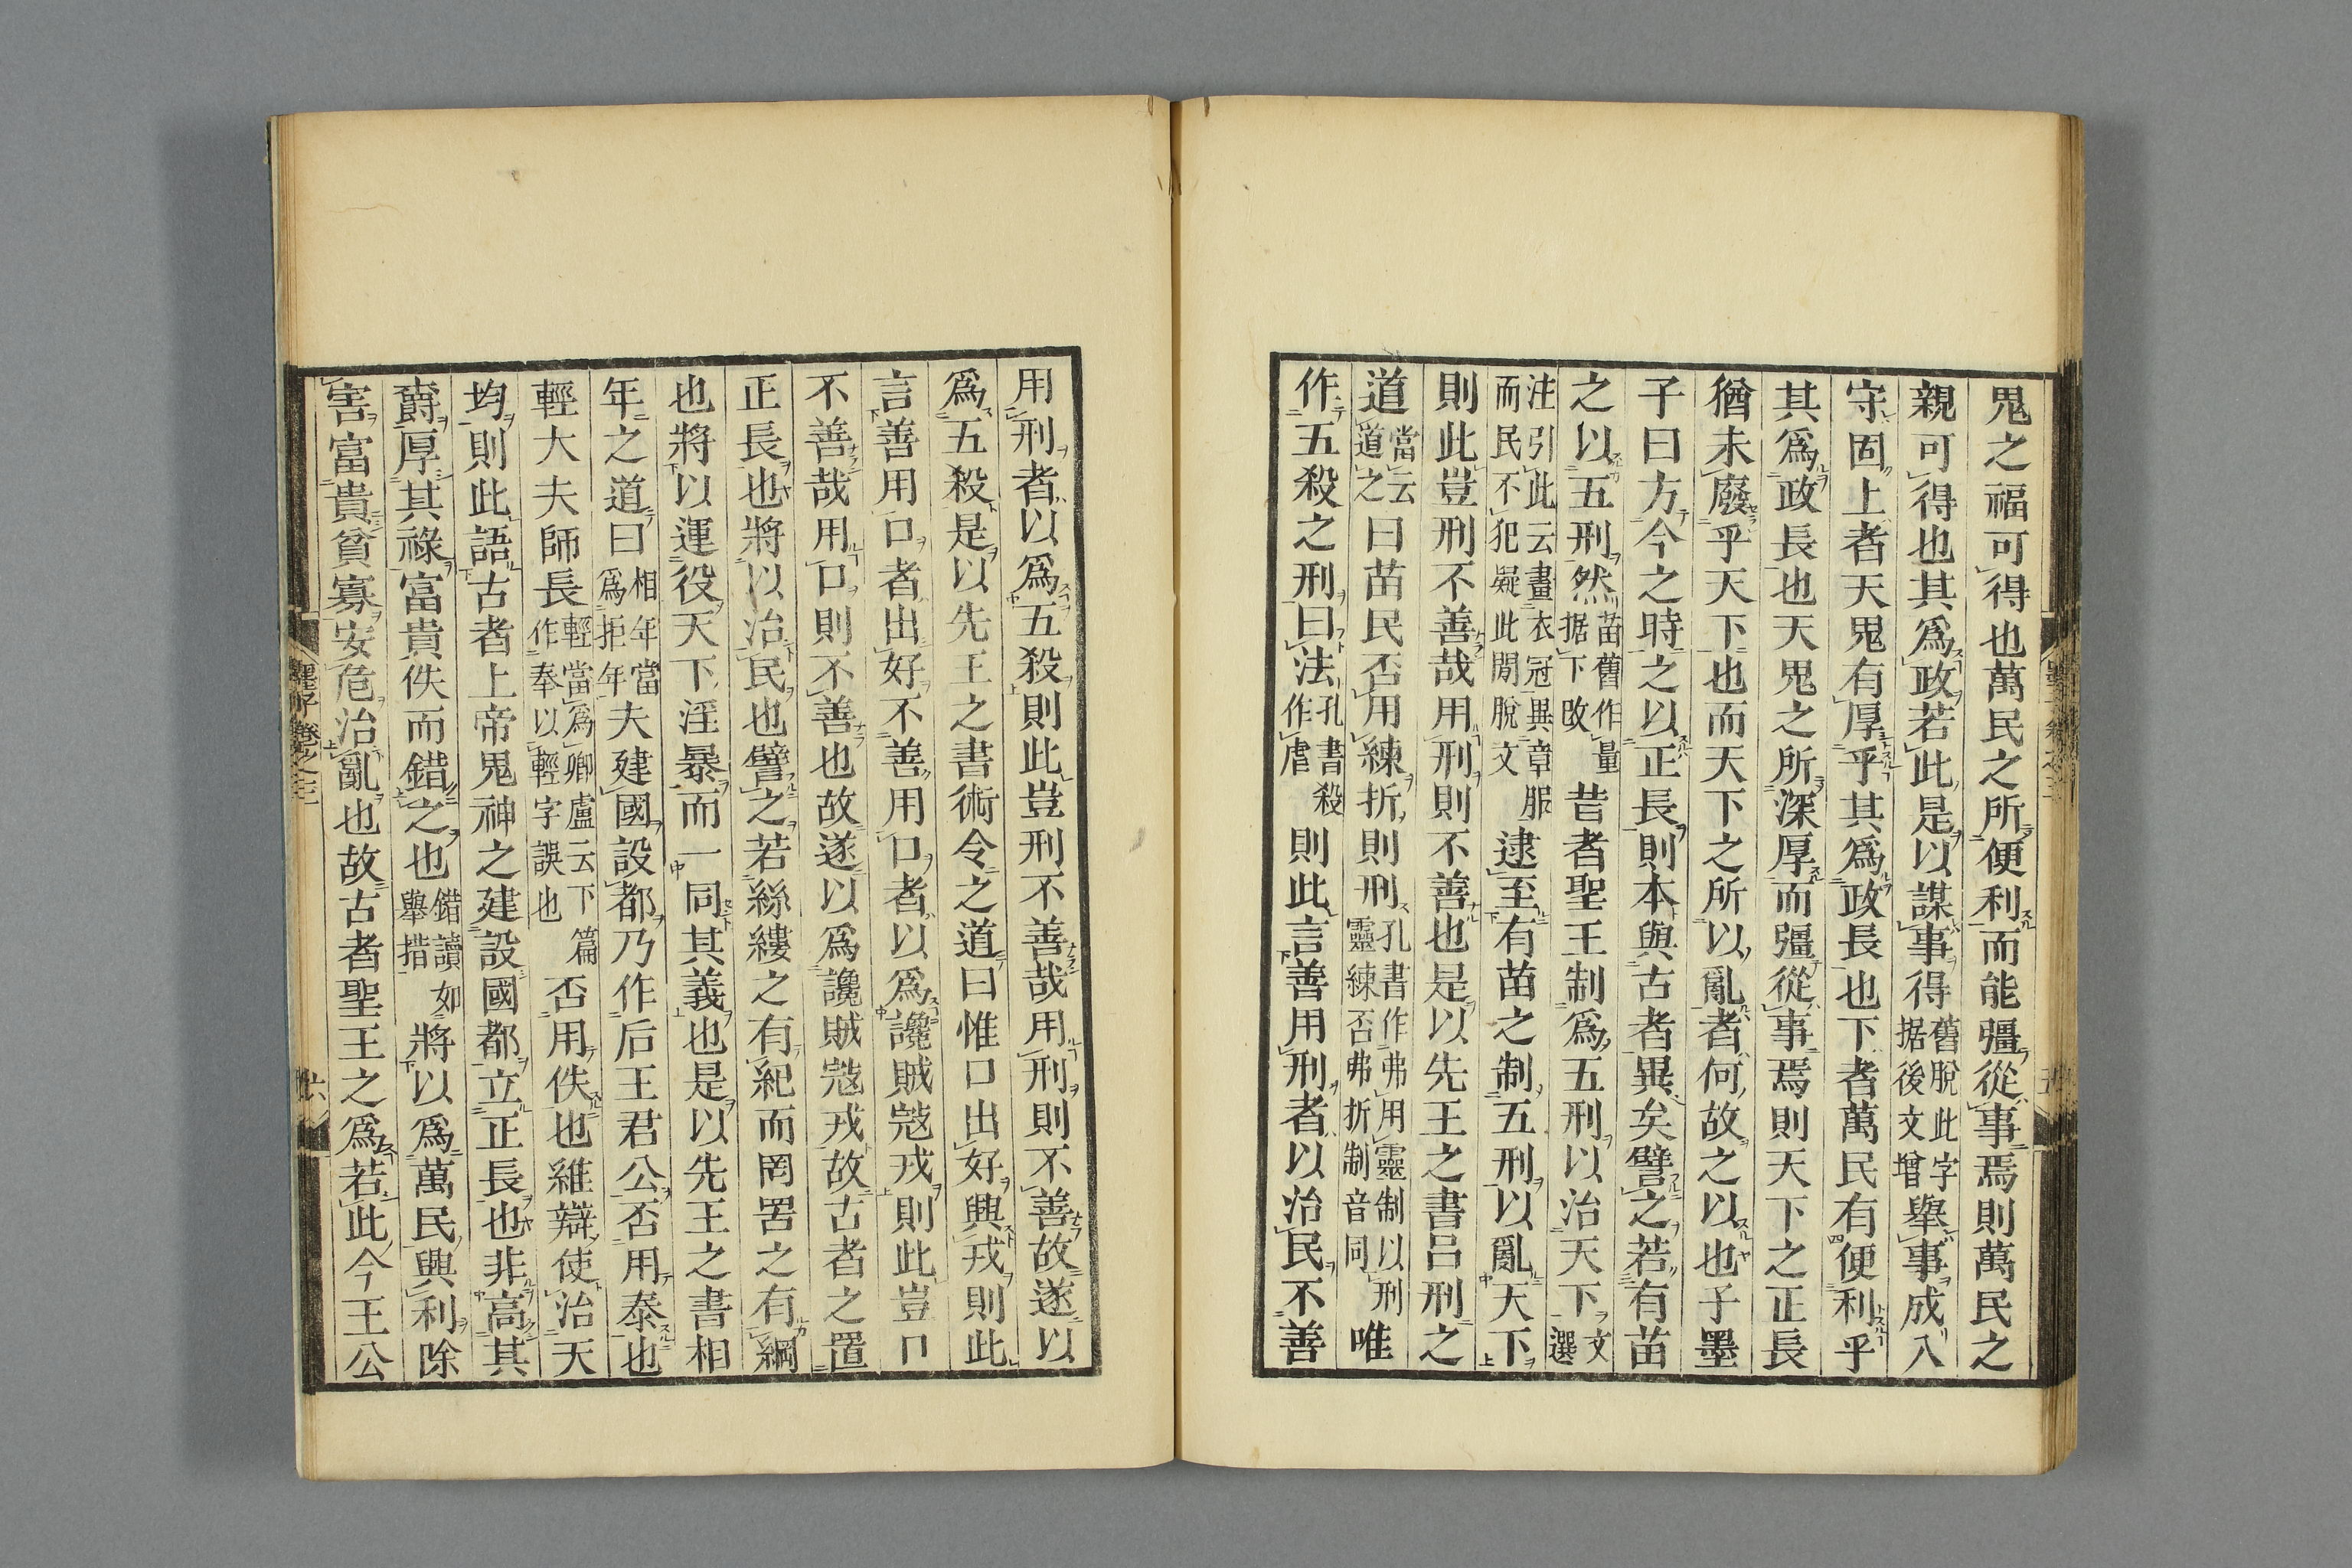 鬼之福可得也萬民之所便利而能彊從事焉則萬民之
親可得也其爲政若此是以謀事得舊脫此字据後文增舉事成入
守固上者天鬼有厚乎其爲政長也下者萬民有便利乎
其爲政長也天鬼之所深厚而彊從事焉則天下之正長
猶未廢乎天下也而天下之所以亂者何故之以也子墨
子曰方今之時之以正長則本與古者異矣譬之若有苗
之以五刑然苗舊作量据下改昔者聖王制爲五刑以治天下文選
注引此云畫衣冠異章服而民不犯疑此閒脫文逮至有苗之制五刑以亂天下
則此豈刑不善哉用刑則不善也是以先王之書呂刑之
道當云道之曰苗民否用練折則刑孔書作弗用靈制以刑靈練否弗折制音同唯
作五殺之刑曰法孔書殺作虐則此言善用刑者以治民不善
用刑者以爲五殺則此豈刑不善哉用刑則不善故遂以
爲五殺是以先王之書術令之道曰惟口出好興戎則此
言善用口者出好不善用口者以爲讒賊寇戎則此豈口
不善哉用口則不善也故遂以爲讒賊寇戎故古者之置
正長也將以治民也譬之若絲縷之有紀而罔罟之有綱
也將以運役天下淫暴而一同其義也是以先王之書相
年之道曰相年當爲拒年夫建國設都乃作后王君公否用泰也
輕大夫師長輕當爲卿盧云下篇作奉以輕字誤也否用佚也維辯使治天
均則此語古者上帝鬼神之建設國都立正長也非高其
爵厚其祿富貴佚而錯之也錯讀如舉措將以爲萬民興利除
害富貴貧寡安危治亂也故古者聖王之爲若此今王公
墨子卷之三
六